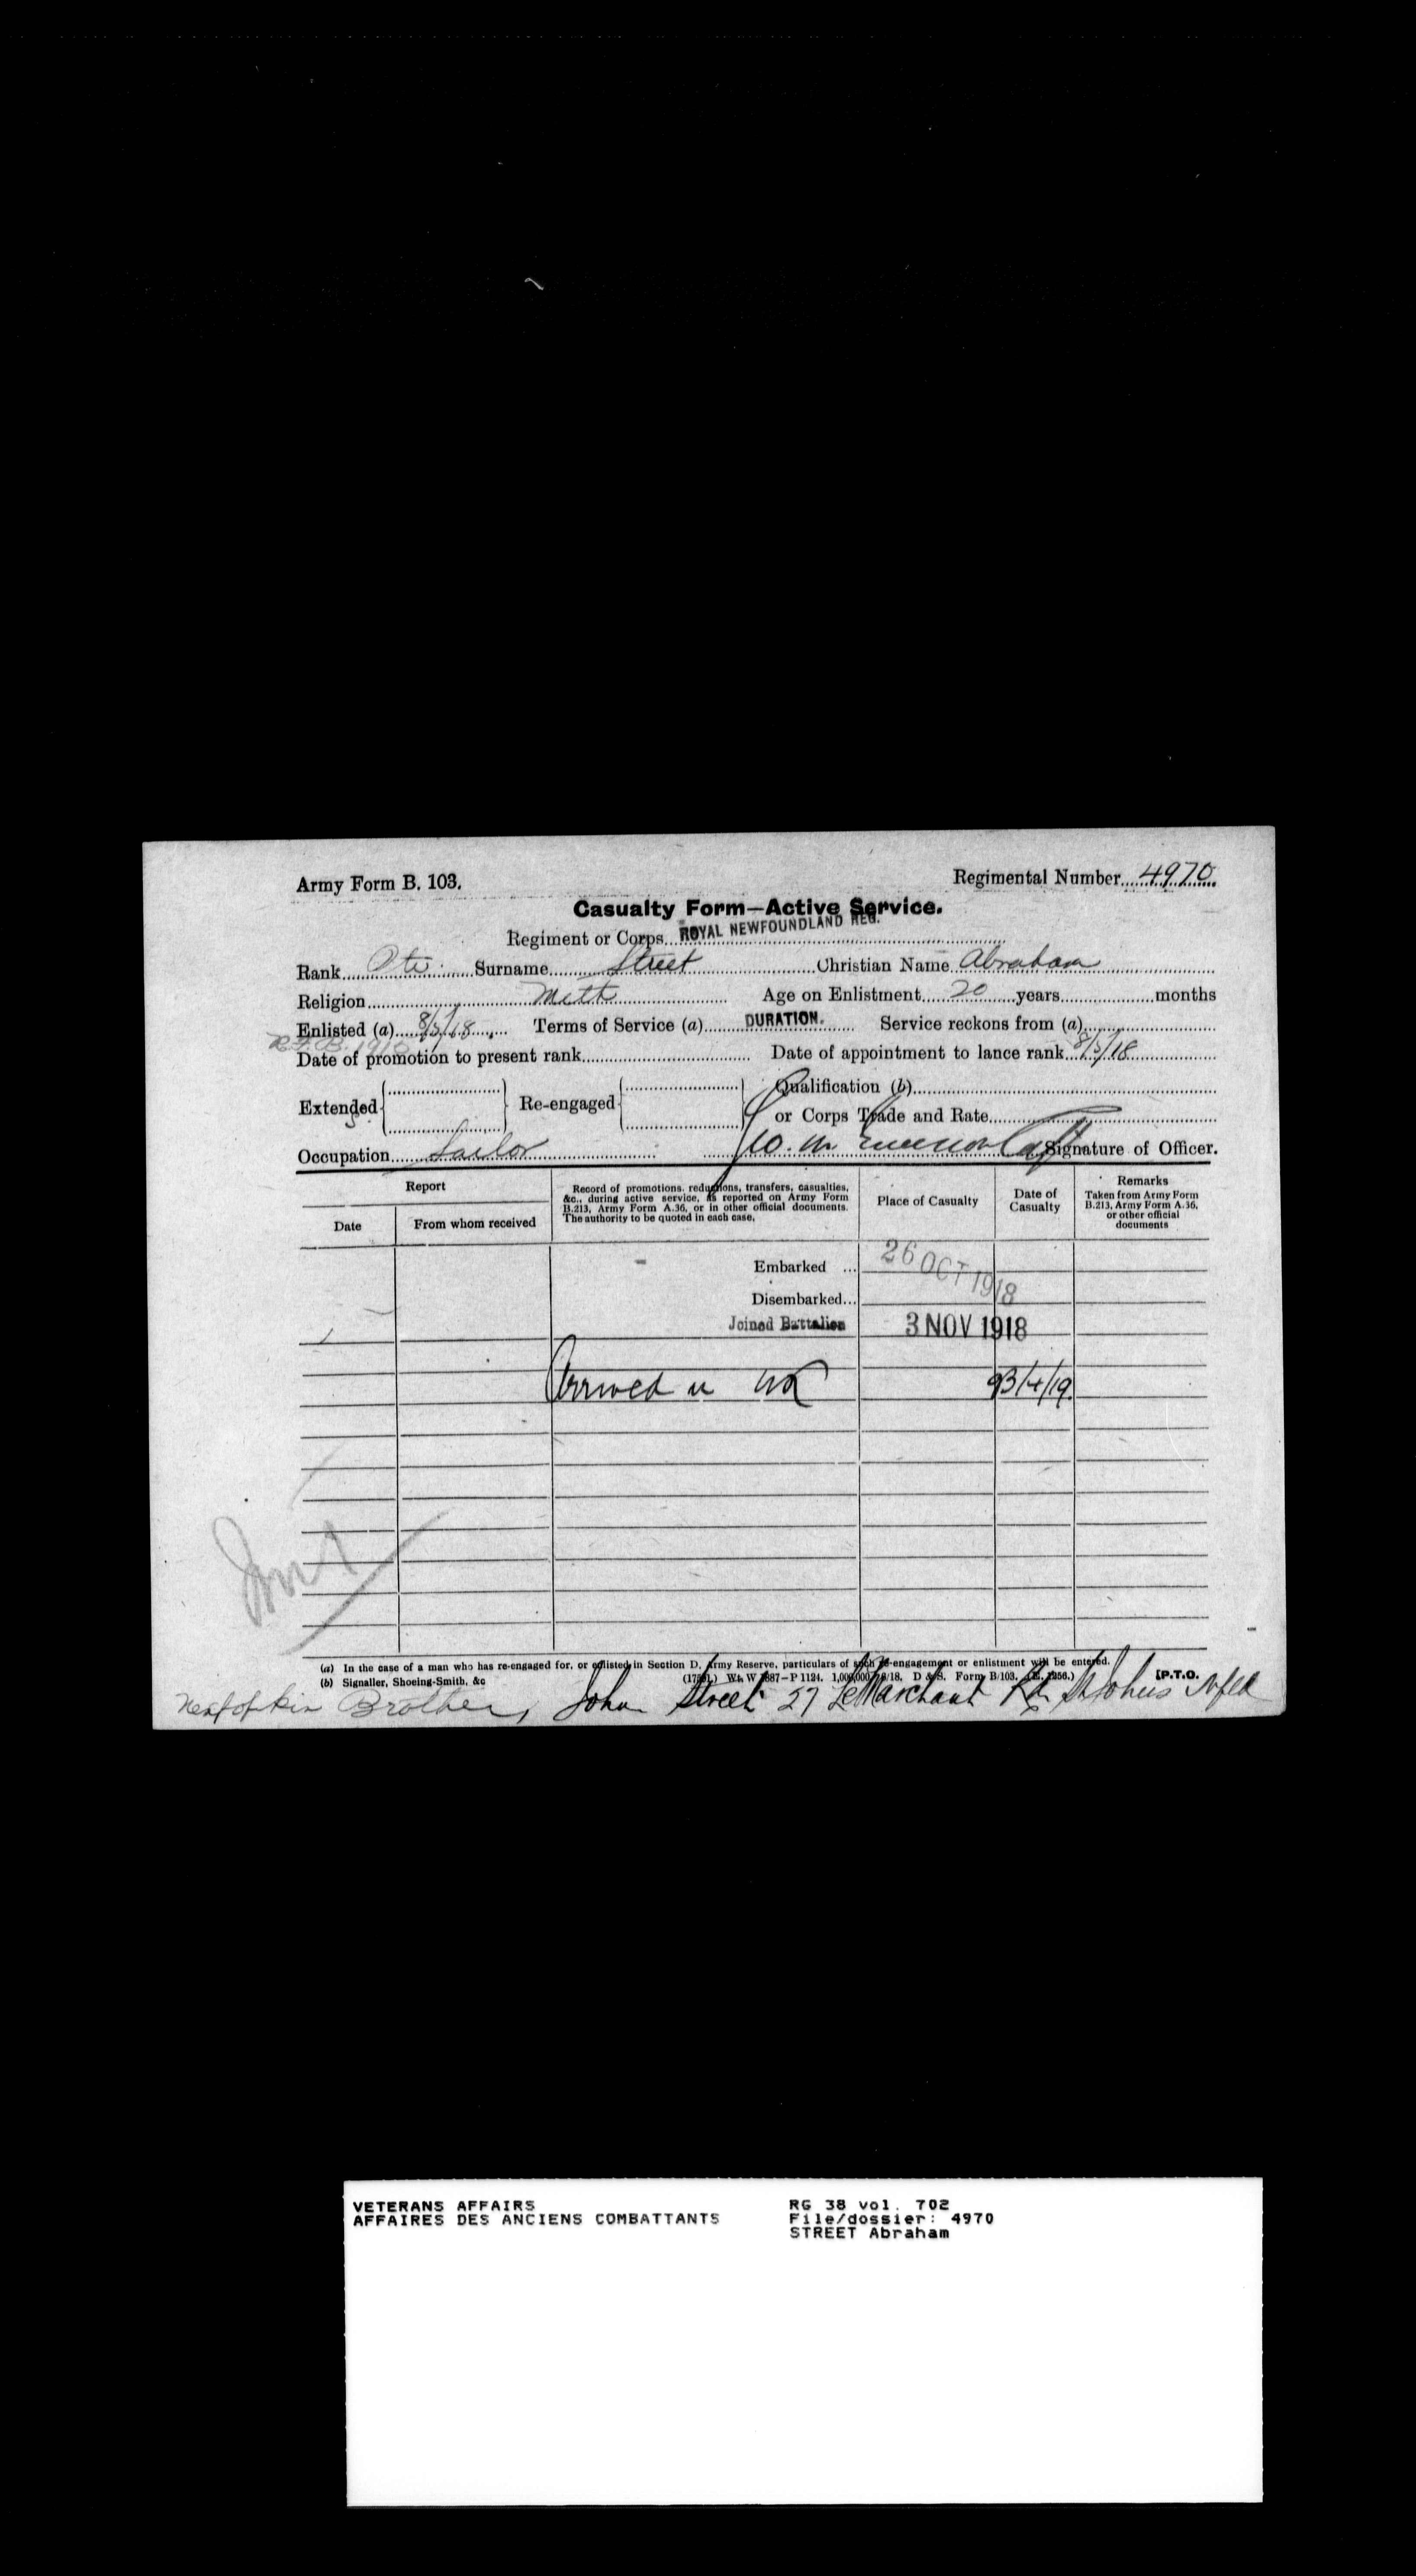 Army Form B. 103.
Regimental Number 4970
Casualty Form—Active Service.
Regiment or Corps ROYAL NEWFOUNDLAND REG.
Rank Pte. Surname Street Christian Name Abraham
Religion Meth Age on Enlistment 20 years months
Enlisted (a) 8/5/18 Terms of Service (a) DURATION. Service reckons from (a) 8/5/18
Date of promotion to present rank Date of appointment to lance rank
Extended Re-engaged Qualification (b)
or Corps Trade and Rate
Occupation Sailor Capt Signature of Officer.
Report
Date
From whom received
Record of promotions, reductions, transfers, casualties,
&c., during active service, as reported on Army Form
B.213, Army Form A.36, or in other official documents.
The authority to be quoted in each case.
Place of Casualty
Date of
Casualty
Remarks
Taken from Army Form
B.213, Army Form A.36,
or other official
documents
Embarked ... 26 OCT 1918
Disembarked...
Joined Battalion 3 NOV 1918
Arrived in UK 23/4/19
(a) In the case of a man who has re-engaged for, or enlisted in Section D, Army Reserve, particulars of such re-engagement or enlistment will be entered.
(b) Signaller, Shoeing-Smith, &c W1887—P 1124. D & S. Form B/103. [P.T.O.
Next of kin Brother, John Street 27 LeMarchant Rd St Johns Nfld
VETERANS AFFAIRS
AFFAIRES DES ANCIENS COMBATTANTS
RG 38 vol. 702
File/dossier: 4970
STREET Abraham